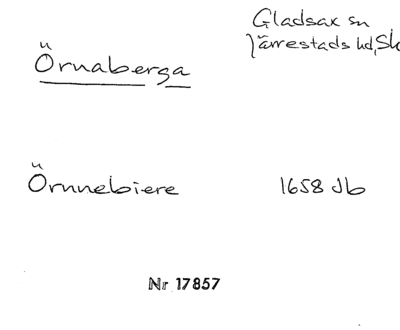 Örnaberga
Gladsax sn
Järrestads hd, Sk
Örnnebiere 1658 Jb
Nr 17857